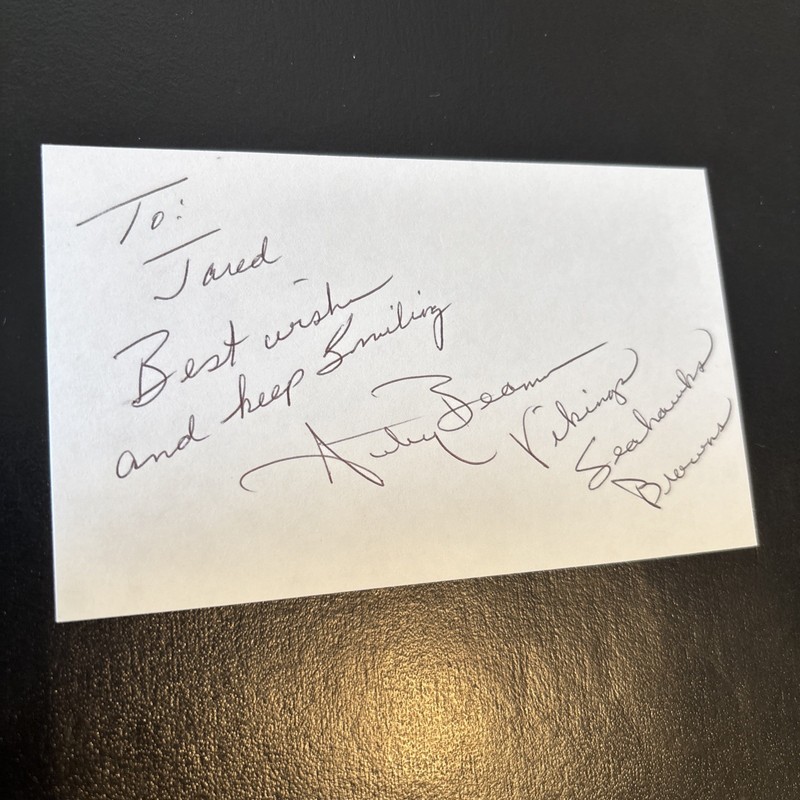 To:
Jared
Best wishes
and keep Smiling
Autry Beamon
Vikings
Seahawks
Browns